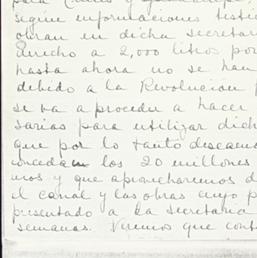 para
según informaciones testi
obran en dicha secretar
derecho a 2,000 litros por
hasta ahora no se han
debido a la Revolución p
se va a proceder a hacer
sarias para utilizar dich
que por lo tanto deseamos
concedan los 20 millones
mos y que aprovecharemos d
el canal y las obras cuyo p
presentado a la Secretaria
semanas. Veremos que cont